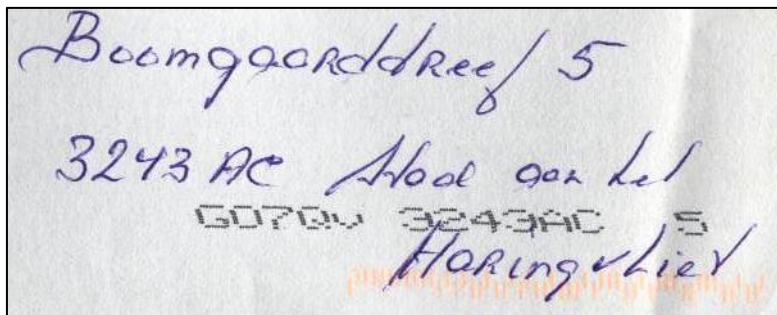 Boomgaarddreef 5
3243 AC Stad aan het
GO7QV 3243AC 5
Haringvliet